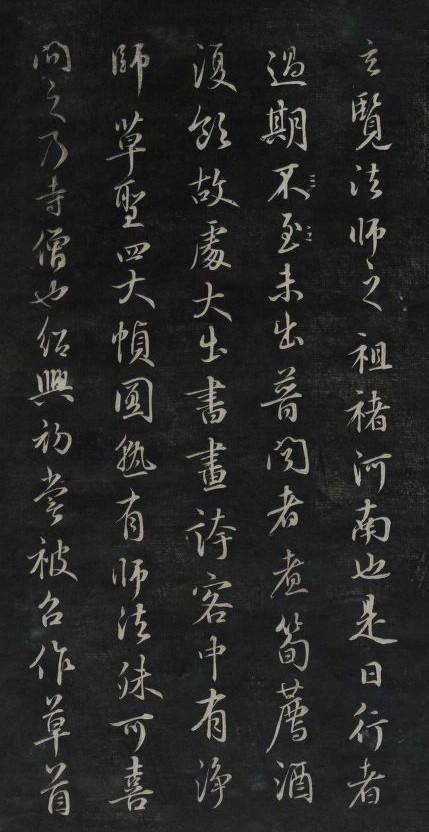 玄覽法師之祖褚河南也是日行者
過期不至未出普者煮筍薦酒
復飲故處大出書畫客中有淨
師草聖四大幀圓熟有師法殊可喜
問之乃寺僧也紹興初嘗被召作草首